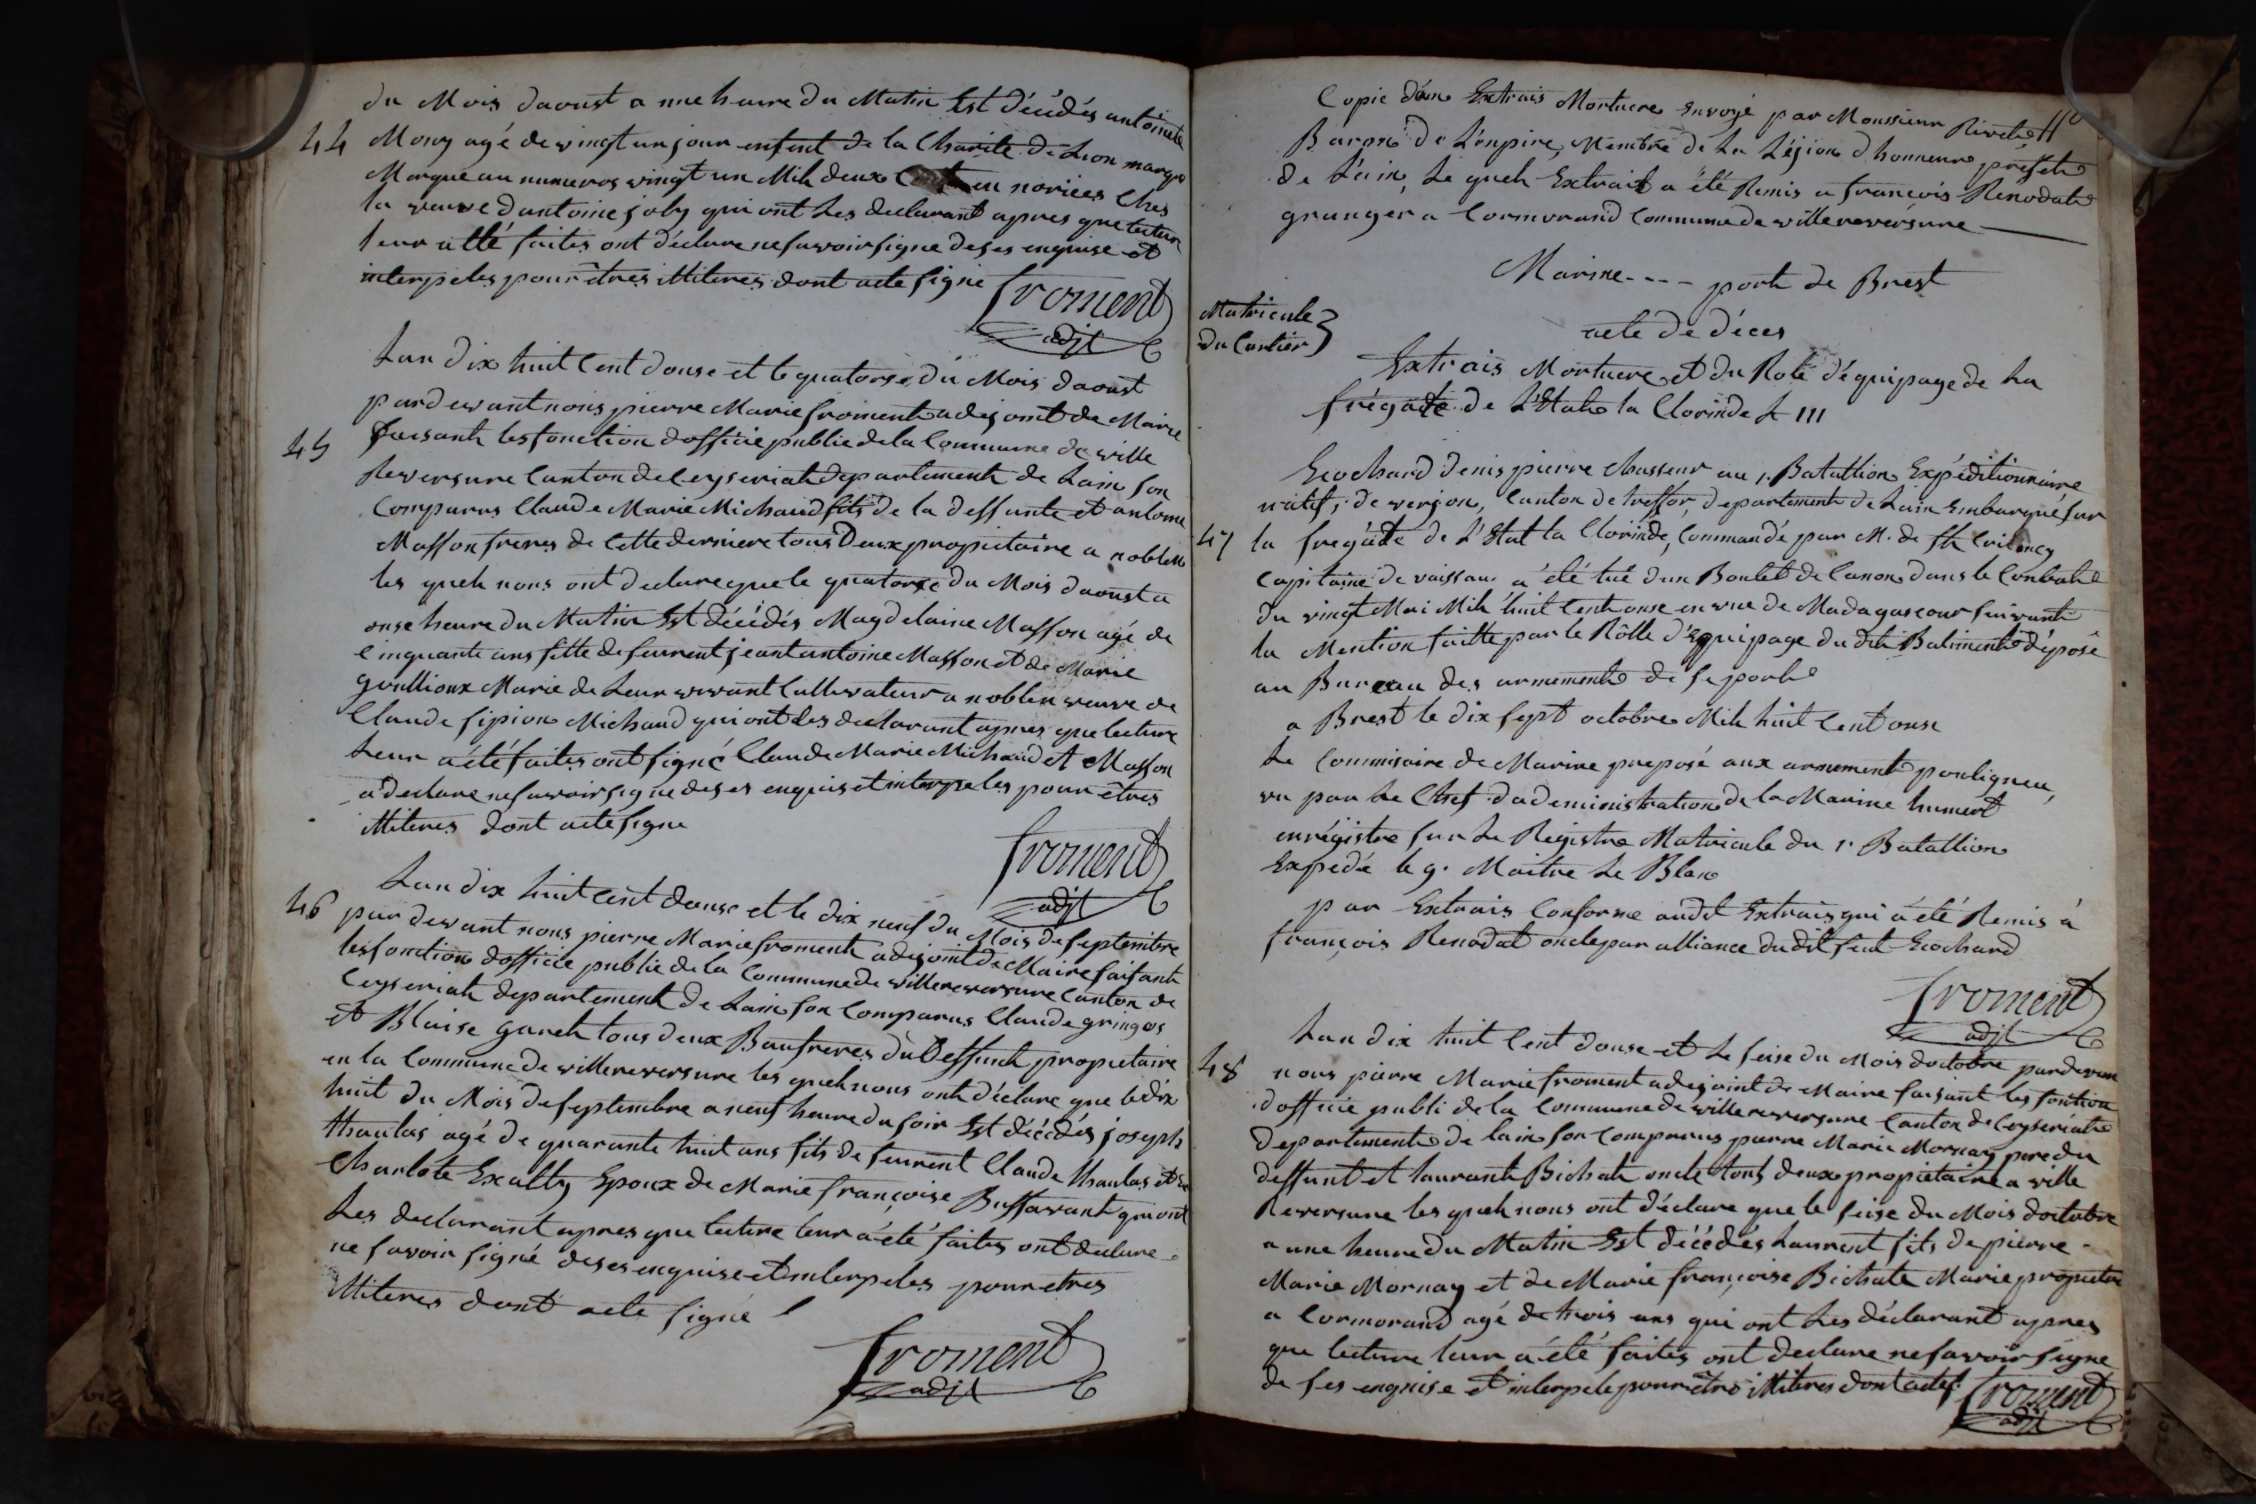 du Mois daoust a une heure du Matin Est décédés antoinete
44 Mory agé de vingt un jour enfent de la Charité de Lion marqu
Marque au numeros vingt un Mih deux Cent en norices Ches
la veuve dantoine joly qui ont Les declarant apres que lecture
leur a été faites ont déclare ne savoir signe deses enquise et
interpeles pour êtres illiteres dont acte signé
froment
adjt
Lan dix huit Cent douse et le quatorse du Mois daoust
pardevant nous pierre Marie froment adejoint de Maire
45 faisant les fonction dofficie publie de la Commune de ville
Reversure Canton de Ceyseriat departement de Lain son
Comparus Claude Marie Michaud fils de la deffunte et antoine
Masson freres de Cette derniere tous Deux propietaire a noblen
les queh nous ont declare que le quatorse du Mois daoust a
onse heure du Matin Est décédés Magdelaine Masson agé de
cinquante ans fille de feurent jeant antoine Masson et de Marie
guillioux Marie de Leur vivant Cultivateur a noblen veuve de
Claude sipion Michaud qui ont les declarant apres que lecture
Leur a été faites ont signé Claude Marie Michaud et Masson
a declare ne savoir signe deses enquis et interpeles pour êtres
illiteres dont acte signe
froment
adjt
Lan dix huit Cent douse et le dix neuf du Mois de septembre
46 par devant nous pierre Marie froment adejoint de Maire faisant
les fonction dofficie publie de la Commune de villereversure Canton de
Ceyseriat departement de Lain son Comparus Claude gringos
et Blaise gareh tous deux Baufreres du Deffunt propietaire
en la Commune de villereversure les queh nous ont déclare que le dix
huit du Mois de septembre a neuf heure du soir Est décédés joseph
thaulas agé de quarante huit ans fils de feurent Claude thaulas et de
Charlote Exally Epoux de Marie françoise Buffavant qui ont
Les declarant apres que lecture leur a été faites ont declare
ne savoir signé deses enquise et interpeles pour etres
illiteres dont acte signé
froment
adjt
Copie d'un Extrais Mortuere Envoyé par Monssieur Rivet
Baron de L'enpire, Membre de La Légion d'honneur préfet
de L'ain, Le queh Extrait a été Remis a françois Rénodat
granger a Cormorand Commune de villereversure
Marine - - - - port de Brest
Matricule
du Cartier
acte de déces
Extrais Mortuere et du Role d'équipage de La
frégate de L'Etat la Clorinde L III
Ecochard denis pierre Chasseur au 1. Batallion Expéditionnaire
natif, de verjon, Canton de treffor, departement de Lain Embarqué sur
47 la fregate de L'Etat la Clorinde, Commandé par M. de St Cricncy
Capitaine de vaissau a été tué dun Boulet de Canon dans le Conbat
du vingt Mai Mih huit Cent onse en vue de Madagascar suivant
la Mention faitte par le Rôlle d'Equipage du dit Batiment déposé
au Bureau des armement de se port
a Brest le dix sept octobre Mih huit Cent onse
Le Commisaire de Marine preposé aux armement pouligneu,
vu par Le Chef dadeministration de la Marine humert
enrégistre sur Le Régistre Matricule du 1r Batallion
Expedié le q. Maitre Le Blanc
par Extrais Conforme audit Extrais qui a été Remis à
françois Renodat oncle par alliance du dit feut Ecochard
froment
adjt
Lan dix huit Cent douse et Le seise du Mois doctobre pardevant
48 nous pierre Marie froment adejoint de Maire faisant les fontion
dofficie publi de la Commune de villereversure Canton de Ceyseriat
departement de lain son Comparus pierre Marie Mornay pere du
deffunt et laurant Bichat oncle tous deux propietaire a ville
Reversure les queh nous ont déclare que le seise du Mois doctobre
a une heure du Matin Est décédés Laurent fils de pierre
Marie Mornay et de Marie françoise Bichate Marie propietere
a Cormorand agé de trois ans qui ont Les déclarant apres
que lecture leur a été faites ont declare ne savoir signe
de ses enquise et interpele pour être illiteres dont actes
froment
adjt